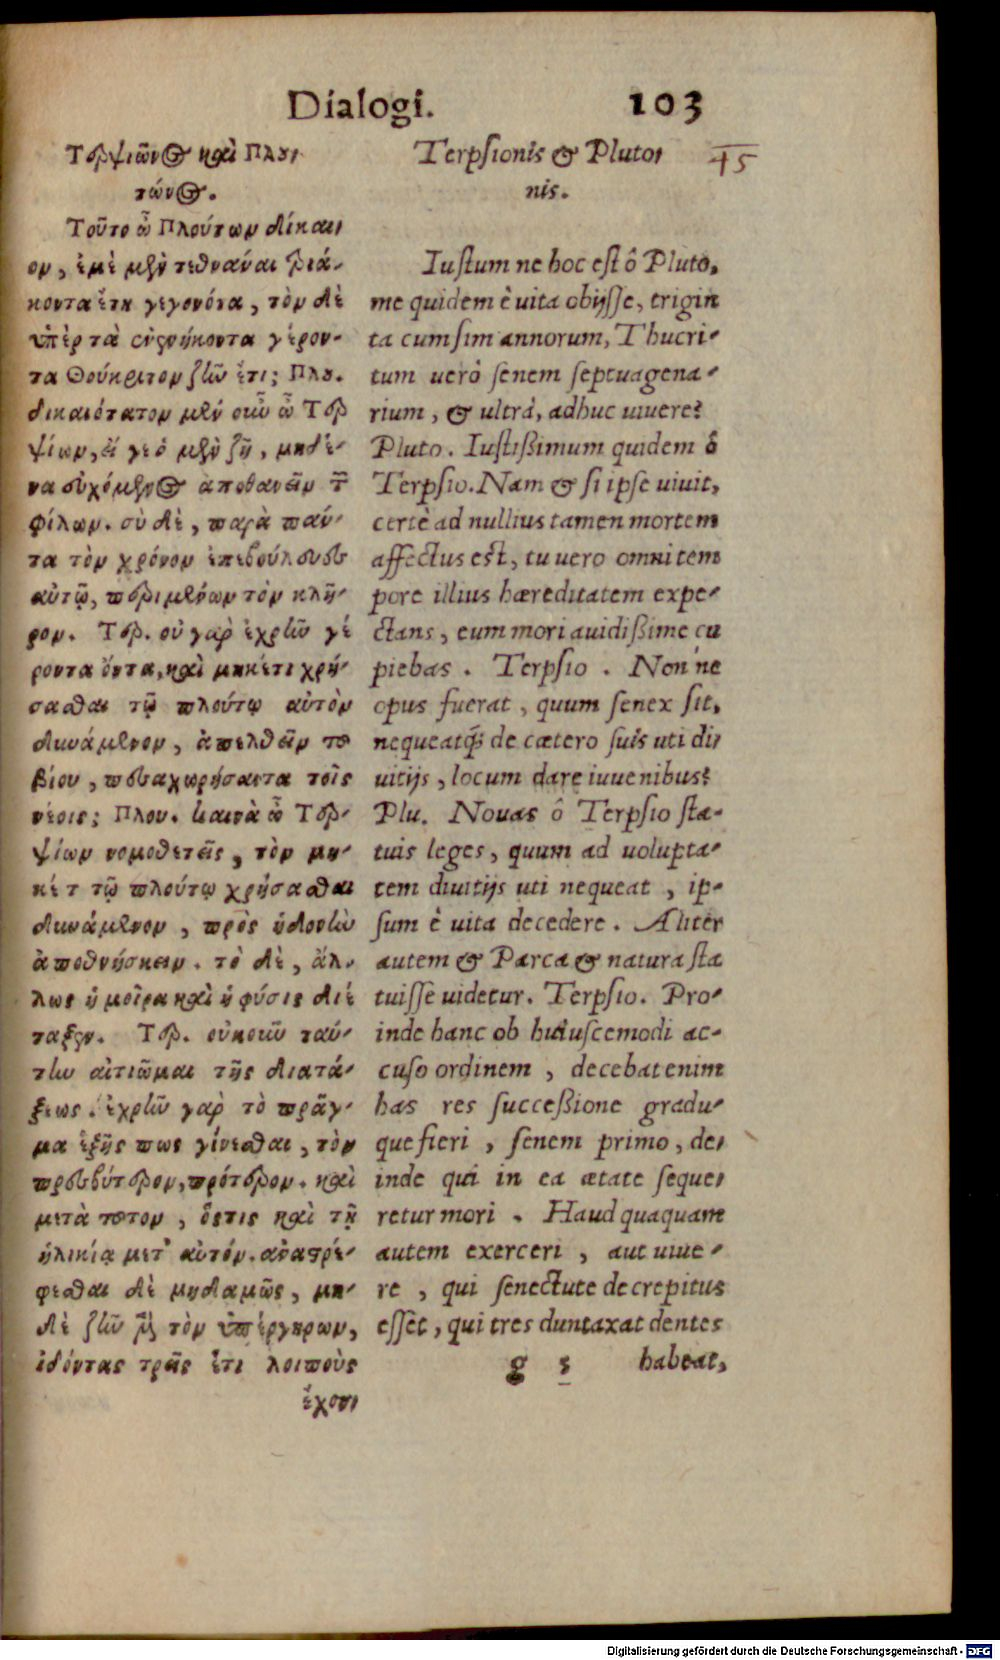 Dialogi. 103
Τερψίωνος καὶ Πλού-
τωνος.
Τοῦτο ὦ Πλούτων δίκαι-
ον, ἐμὲ μὲν τεθνάναι τριά-
κοντα ἔτη γεγονότα, τὸν δὲ
ὑπὲρ τὰ ἐνενήκοντα γέρον-
τα Θούκριτον ζῶν ἔτι; Πλου.
δικαιότατον μὲν οὖν ὦ Τερ
ψίων, εἴ γε ὁ μὲν ζῇ, μηδέ-
να εὐχόμενος ἀποθανεῖν τῶν
φίλων. σὺ δὲ, παρὰ πάν-
τα τὸν χρόνον ἐπεβούλευες
αὐτῷ, περιμένων τὸν κλῆ-
ρον. Τερ. οὐ γὰρ ἐχρῆν γέ
ροντα ὄντα, καὶ μηκέτι χρή-
σασθαι τῷ πλούτῳ αὐτὸν
δυνάμενον, ἀπελθεῖν τοῦ
βίου, παραχωρήσαντα τοῖς
νέοις; Πλου. καινὰ ὦ Τερ-
ψίων νομοθετεῖς, τὸν μη-
κέτ τῷ πλούτῳ χρήσασθαι
δυνάμενον, πρὸς ἡδονὴν
ἀποθνήσκειν. τὸ δὲ, ἄλ-
λως ἡ μοῖρα καὶ ἡ φύσις διέ
ταξεν. Τερ. οὐκοῦν ταύ-
την αἰτιῶμαι τῆς διατά-
ξεως. ἐχρῆν γὰρ τὸ πρᾶγ-
μα ἑξῆς πως γίνεσθαι, τὸν
πρεσβύτερον, πρότερον. καὶ
μετὰ τοῦτον, ὅστις καὶ τῇ
ἡλικίᾳ μετ' αὐτόν. ἀναστρέ-
φεσθαι δὲ μηδαμῶς, μη-
δὲ ζῆν τὸν ὑπέργηρων,
ὀδόντας τρεῖς ἔτι λοιποὺς
ἔχον-
Terpsionis & Pluto- 45
nis.
Iustum ne hoc est ô Pluto,
me quidem è uita obijsse, trigin
ta cum sim annorum, Thucri-
tum uerò senem septuagena-
rium, & ultrà, adhuc uiuere?
Pluto. Iustißimum quidem ô
Terpsio. Nam & si ipse uiuit,
certè ad nullius tamen mortem
affectus est, tu uero omni tem
pore illius hæreditatem expe-
ctans, eum mori auidißime cu
piebas. Terpsio. Non ne
opus fuerat, quum senex sit,
nequeatq́; de cætero suis uti di-
uitijs, locum dare iuuenibus?
Plu. Nouas ô Terpsio sta-
tuis leges, quum ad uolupta-
tem diuitijs uti nequeat, ip-
sum è uita decedere. Aliter
autem & Parca & natura sta
tuisse uidetur. Terpsio. Pro-
inde hanc ob huiuscemodi ac-
cuso ordinem, decebat enim
has res succeßione gradu-
que fieri, senem primo, de-
inde qui in ea ætate seque-
retur mori. Haud quaquam
autem exerceri, aut uiue-
re, qui senectute decrepitus
esset, qui tres duntaxat dentes
g 5 habeat,
Digitalisierung gefördert durch die Deutsche Forschungsgemeinschaft - DFG